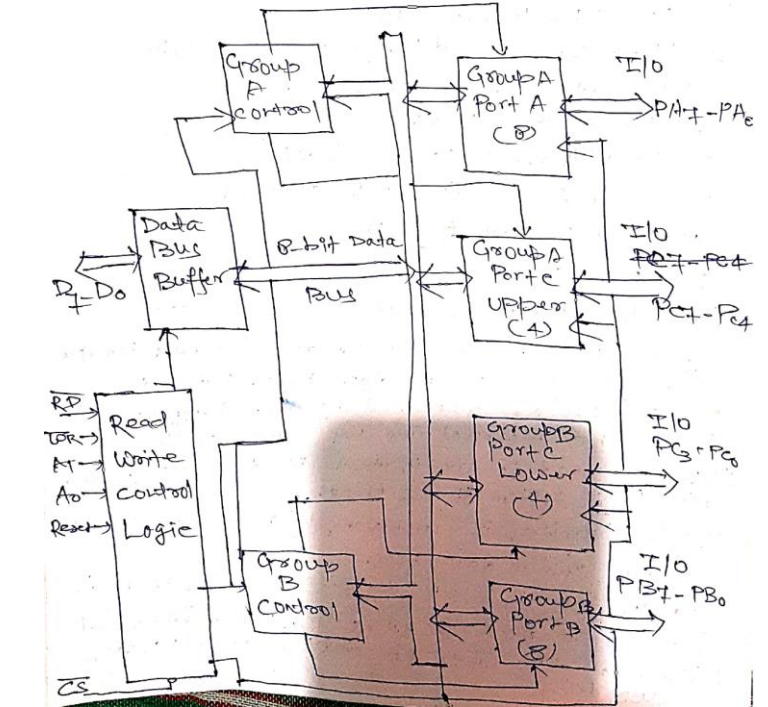 Group
A
control
Group A
Port A
(8)
I/O
PA7-PA0
Data
Bus
Buffer
D7-D0
8-bit Data
Bus
Group A
Port C
Upper
(4)
I/O
PC7-PC4
PC7-PC4
RD
Read
Write
Control
Logic
A1
A0
Reset
CS
Group B
Port C
Lower
(4)
I/O
PC3-PC0
Group
B
Control
Group B
Port B
(8)
I/O
PB7-PB0